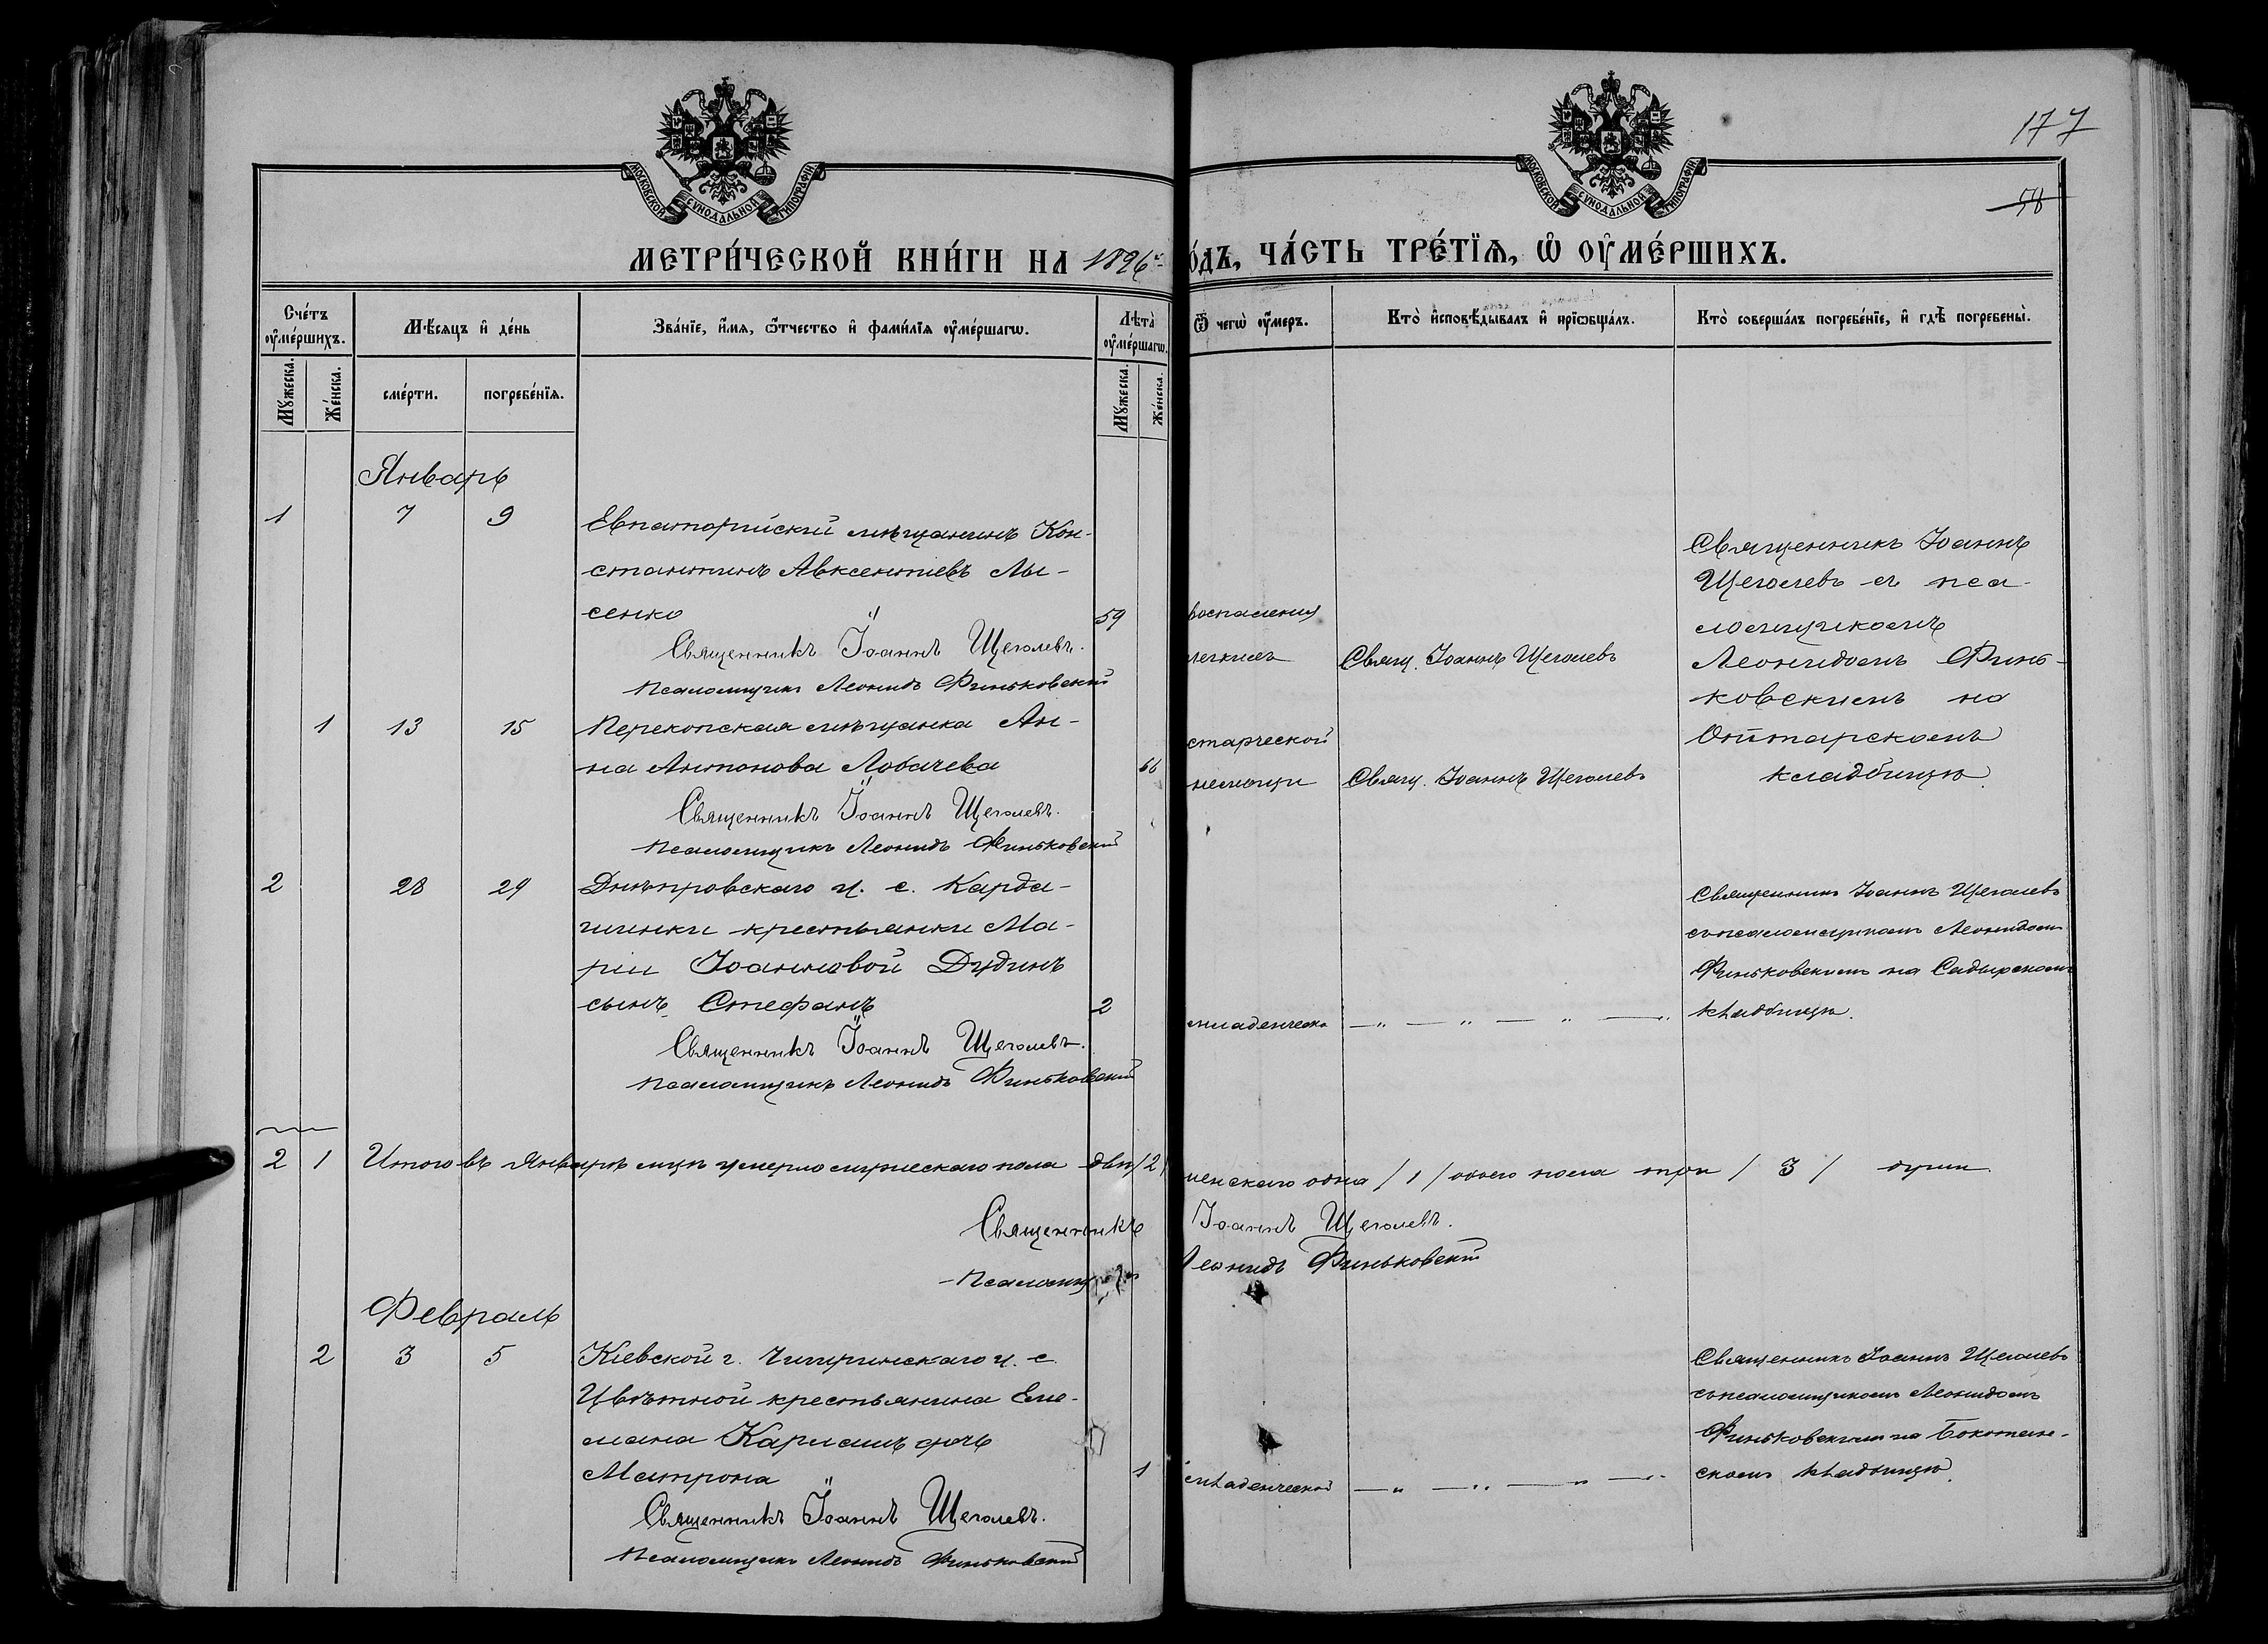 МОСКОВСКОЙ СУНОДАЛЬНОЙ ТИПОГРАФІИ
МОСКОВСКОЙ СУНОДАЛЬНОЙ ТИПОГРАФІИ
177
58
МЕТРИ́ЧЕСКОЙ КНИ́ГИ НА 1896
о́дъ, ЧА́СТЬ ТРЕ́ТЇѦ, Ѡ ОУМЕ́РШИХЪ.
Сче́тъ оумершихъ.
Мѣсяцъ и де́нь
Зва́нїе, и́мя, ѿтчество и фами́лїя оуме́ршагѡ.
Лѣта̀ оуме́ршагѡ.
Ѿ чегѡ̀ оу́меръ.
Кто̀ исповѣ́дывалъ и прїѡбща́лъ.
Кто̀ соверша́лъ погребе́нїе, и гдѣ̀ погребены̀.
Му́жеска.
Же́нска.
сме́рти.
погребе́нїя.
Му́жеска.
Же́нска.
Январь
1 7 9 Евпаторійскій мѣщанинъ Кон-
стантинъ Авксентіевъ Лы-
сенко 59
Священникъ Іоаннъ Щеголевъ.
Псаломщикъ Леонидъ Финьковскій
воспаленія
легкихъ
Свящ. Іоаннъ Щеголевъ
Священникъ Іоаннъ
Щеголевъ съ пса-
ломщикомъ
Леонидомъ Финь-
ковскимъ на
Отмарскомъ
кладбищѣ.
1 13 15 Перекопская мѣщанка Ан-
на Антонова Лобачева 66
Священникъ Іоаннъ Щеголевъ.
Псаломщикъ Леонидъ Финьковскій
старческой
немощи
Свящ. Іоаннъ Щеголевъ
2 28 29 Днѣпровскаго у. с. Карда-
шинки крестьянки Ма-
ріи Іоанновой Дудинъ
сынъ Стефанъ 2
Священникъ Іоаннъ Щеголевъ.
Псаломщикъ Леонидъ Финьковскій
младенческо
Священникъ Іоаннъ Щеголевъ
съ псаломщикомъ Леонидомъ
Финьковскимъ на Садырскомъ
кладбищѣ.
2 1 Итого въ Январѣ м-цѣ умерло мужескаго пола два /2/
женскаго одна /1/ обоего пола три /3/ души.
Священникъ Іоаннъ Щеголевъ.
Псаломщикъ Леонидъ Финьковскій
Февраль
2 3 5 Кіевской г. Чигиринскаго у. с.
Цвѣтной крестьянина Еме-
ліана Карлашъ дочь
Матрона 1
Священникъ Іоаннъ Щеголевъ.
Псаломщикъ Леонидъ Финьковскій
младенческой
Священникъ Іоаннъ Щеголевъ
съ псаломщикомъ Леонидомъ
Финьковскимъ на
скомъ кладбищѣ.